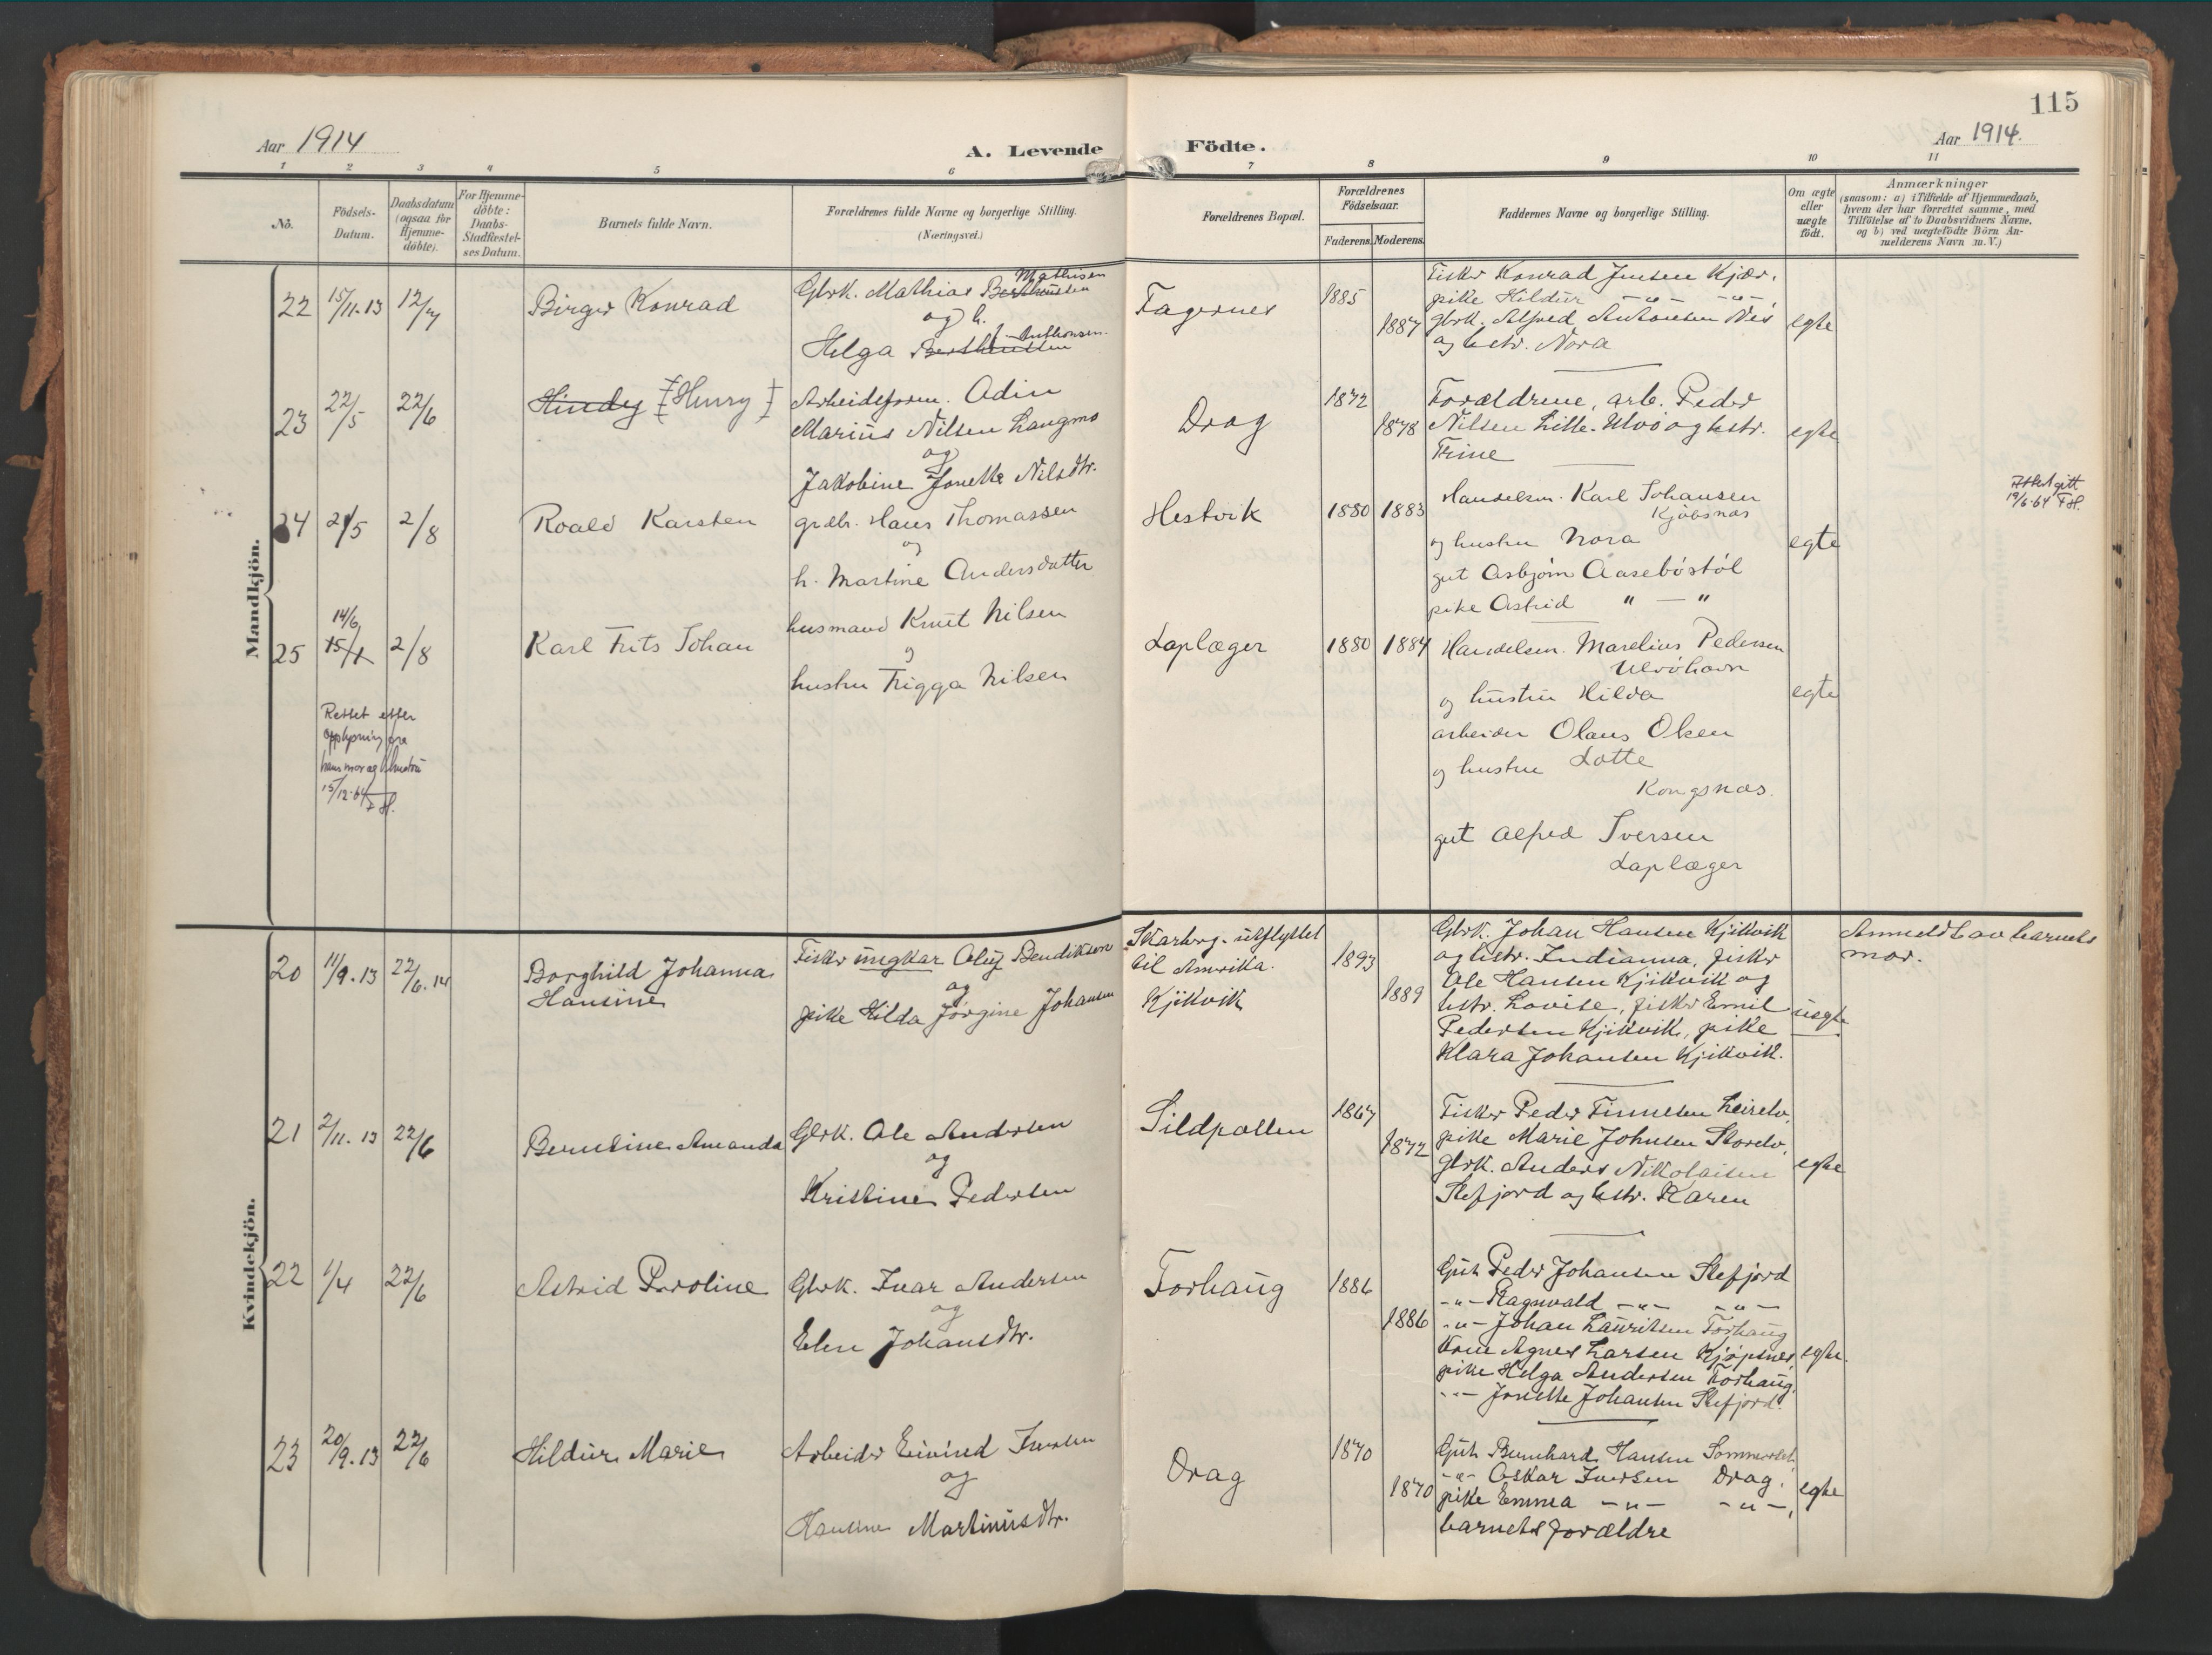 115
Aar 1914
A. Levende
Födte.
Aar 1914.
1 2 3 4 5 6 7 8 9 10 11
No.
Födsels-Datum.
Daabsdatum (ogsaa for Hjemme-döbte).
For Hjemme-döbte: Daabs-Stadfæstel-ses Datum.
Barnets fulde Navn.
Forældrenes fulde Navne og borgerlige Stilling.
(Næringsvei.)
Forældrenes Bopæl.
Forældrenes Födselsaar.
Faderens. Moderens.
Faddernes Navne og borgerlige Stilling.
Om ægte eller uægte födt.
Anmærkninger
(saasom: a) i Tilfælde af Hjemmedaab,
hvem der har forrettet samme, med
Tilföielse af to Daabsvidners Navne,
og b) ved uægtefödte Börn An-
melderens Navn m.V.)
Mandkjön.
22 15/11.13 12/4 Birger Konrad
Gbrk. Mathias Berthensen Mathisen
og h.
Helga Berthensen f. Anthonsen.
Fagernes 1885 1887
Fisker Konrad Jensen Kjær,
pike Hildur -"- -"-,
gbrk. Alfred Antonsen Nes
og hstr. Nora
egte
23 22/5 22/6 Hindy [Henry]
Arbeidsform. Odin
Marius Nilsen Langmo
og
Jakobine Jonette Nilsdtr.
Drag 1872 1878
Forældrene, arb. Peder
Nilsen Lille-Ulvö og hstr.
Trine
egte
24 21/5 2/8 Roald Karsten
grdbr. Hans Thomassen
og
h. Martine Andersdatter
Hestvik 1880 1883
Handelsm. Karl Johansen
Kjöbsnæs
og hustru Nora
gut Asbjörn Aaseböstöl
pike Astrid " — "
egte
Attest gitt
19/6-64 FH.
25 14/6 15/7 2/8 Karl Frits Johan
husmand Knut Nilsen
og
hustru Frigga Nilsen
Laplæger 1880 1884
Handelsm. Marelius Pedersen
Ulvöhavn
og hustru Hilda
arbeider Olaus Olsen
og hustru Lotte
Kongsnæs.
gut Alfred Iversen
Laplæger
egte
Rettet etter
opplysning fra
hans mor og
15/12-64 FH.
Kvindekjön.
20 11/9.13 22/6.14 Borghild Johanna
Hansine
Fisker ungkar Oluf Bendiksen
og
pike Hilda Jörgine Johansen
Skarberg - utflyttet
til Amerika.
Kjikvik
1893 1889
Gbrk. Johan Hansen Kjikvik
og hstr. Indianna, fisker
Ole Hansen Kjikvik og
hstr. Lovise, fisker Emil
Pedersen Kjikvik, pike
Klara Johansen Kjikvik.
uegte
Anmeldt av barnets
mor.
21 2/11.13 22/6 Berntine Amanda
Gbrk. Ole Andersen
og
Kristine Pedersen
Sildpollen 1867 1872
Fisker Peder Finnesen Leirelv,
pike Marie Johnsen Storelv,
gbrk. Anders Nikolaisen
Stefjord og hstr. Karen
egte
22 1/4 22/6 Astrid Paroline
Gbrk. Ivar Andersen
og
Elen Johansdtr.
Forhaug 1886 1886
Gut Peder Johansen Stefjord
-"- Ragnvald -"- -"-
-"- Johan Lauritsen Forhaug
kone Agnes Larsen Kjöpsnes,
pike Helga Andersen Forhaug,
-"- Jonette Johansen Stefjord.
egte.
23 20/9.13 22/6 Hildur Marie
Arbeider Eivind Iversen
og
Hansine Martinusdtr.
Drag 1870 1870
Gut Bernhard Hansen Sommerset,
-"- Oskar Iversen Drag,
pike Emma -"- -"-,
barnets forældre
egte